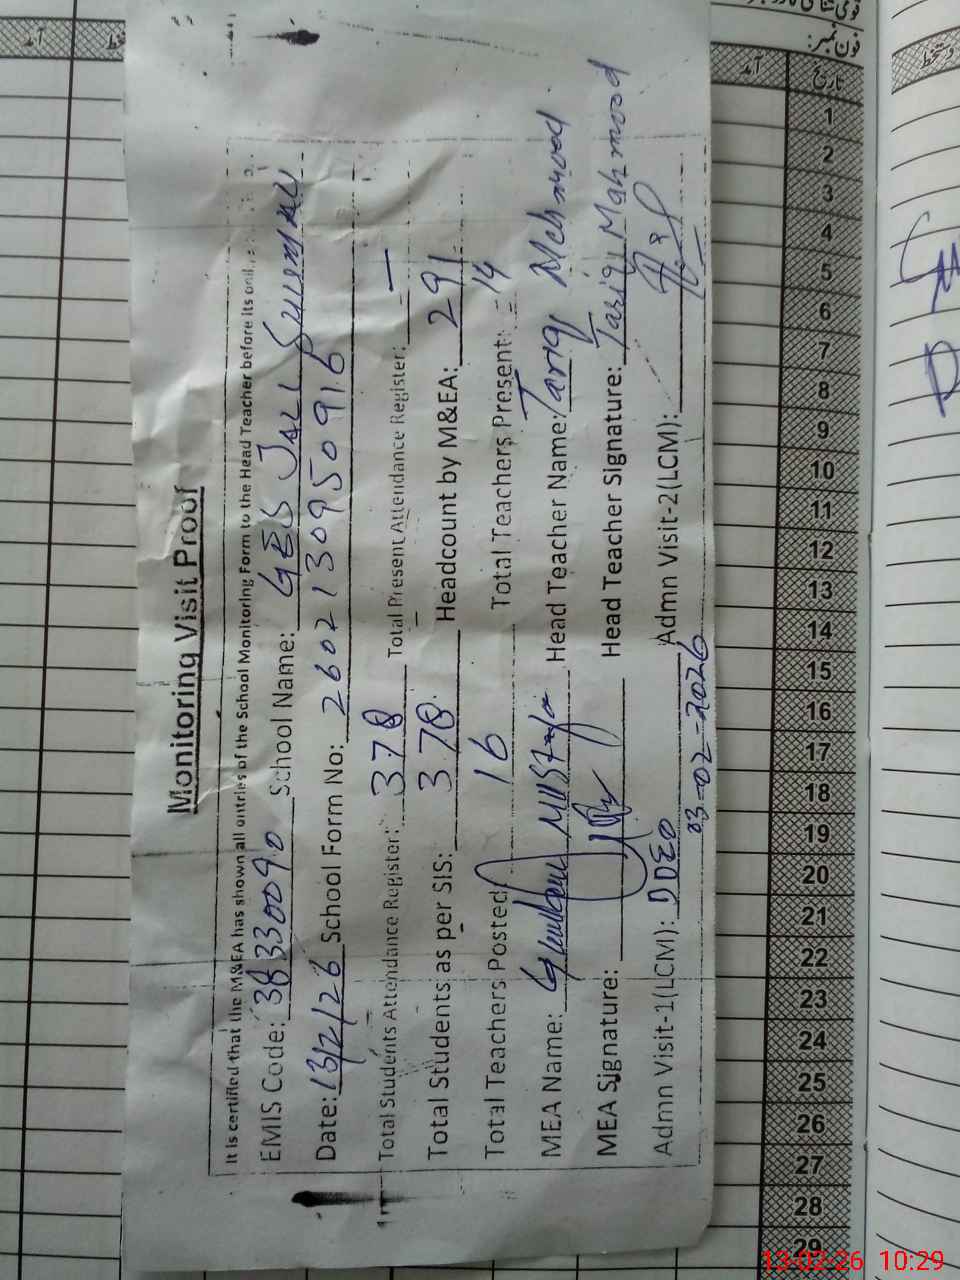 Monitoring Visit Proof
It is certified that the M&EA has shown all entries of the School Monitoring Form to the Head Teacher before its
EMIS Code: 38330090 School Name: GES
Date: 13/2/26 School Form No: 260213095 0916
Total Students Attendance Register: 378 Total Present Attendance Register: —
Total Students as per SIS: 378. Headcount by M&EA: 291
Total Teachers Posted 16 Total Teachers Present: 14
MEA Name: Ghulam Mustafa Head Teacher Name: Tariq Mehmood
MEA Signature: Head Teacher Signature: Tariq Mahmood
Admn Visit-1(LCM): DDEO Admn Visit-2(LCM):
03-02-2026
فون نمبر:
تاریخ
آمد
دستخط
1
2
3
4
5
6
7
8
9
10
11
12
13
14
15
16
17
18
19
20
21
22
23
24
25
26
27
28
29
13-02-26 10:29